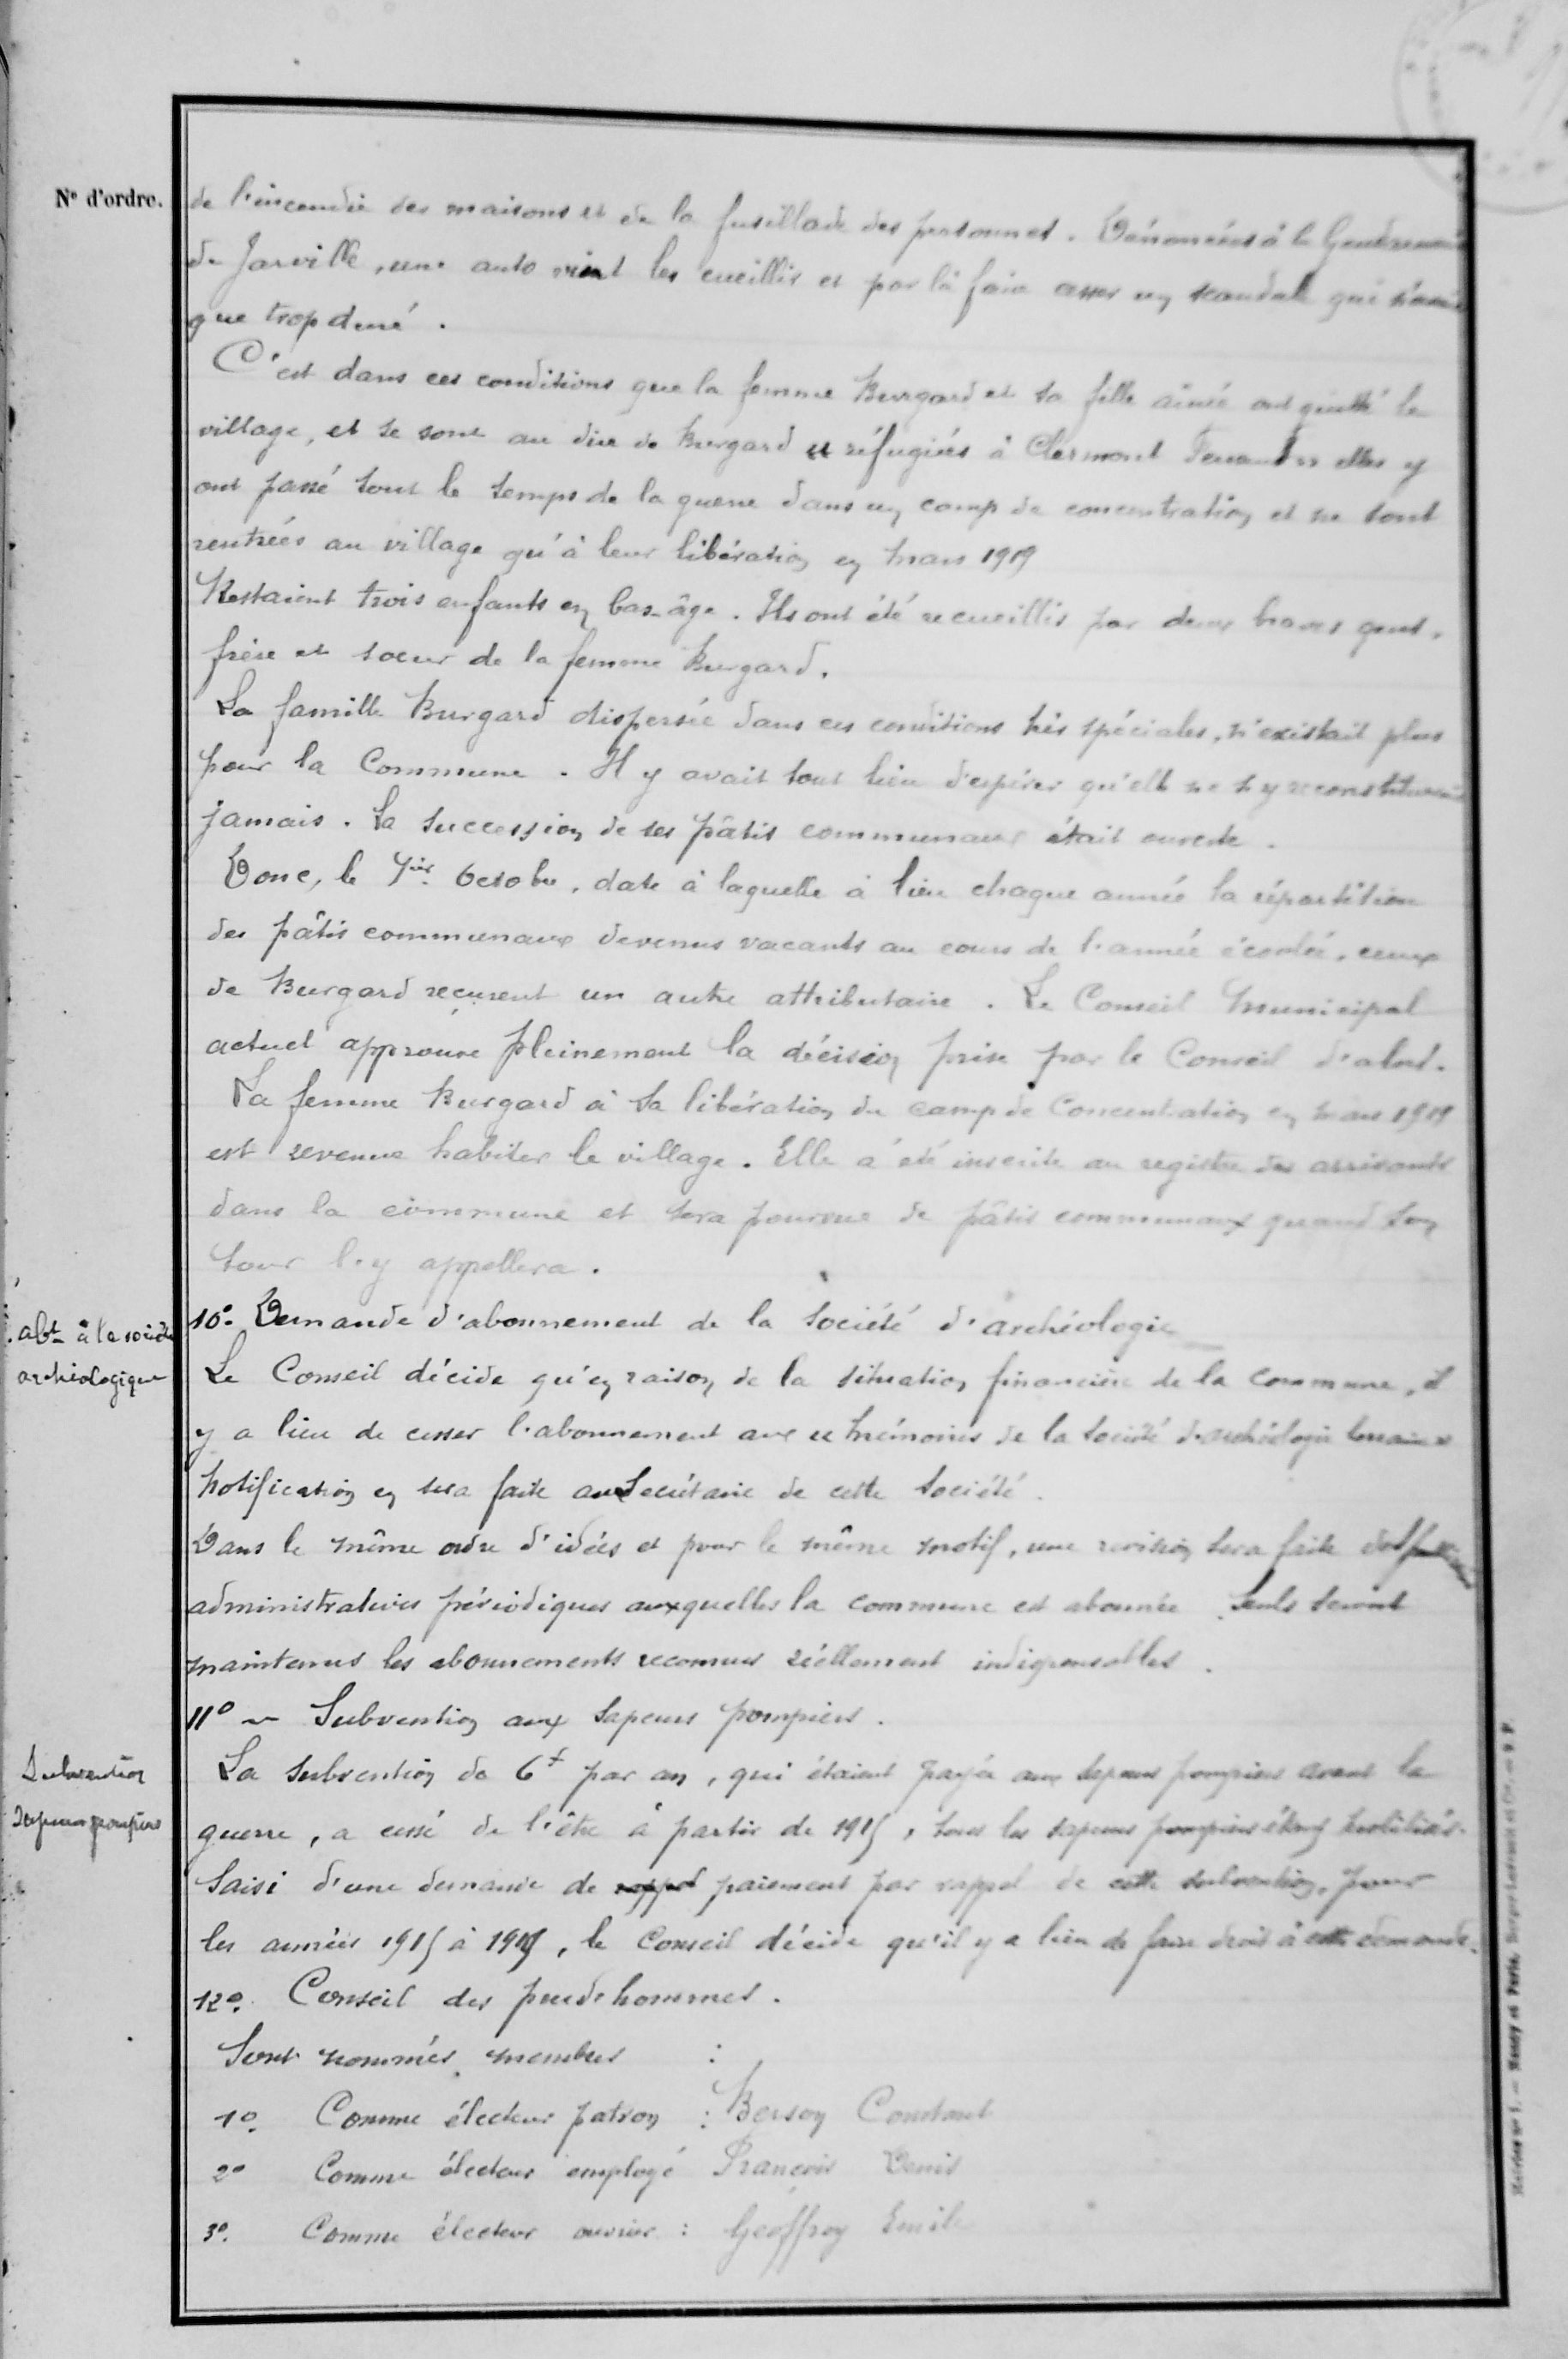 N° d'ordre.
de l'incendie des maisons et de la fusillade des personnes. Dénoncées à la Gendarmerie
de Jarville, une auto vient les cueillir et par là faire cesser un scandale qui n'avait
que trop duré.
C'est dans ces conditions que la femme Burgard et sa fille aînée ont quitté le
village, et se sont au dire de Burgard réfugiées à Clermont Ferrand elles y
ont passé tout le temps de la guerre dans un camp de concentration et ne sont
rentrées au village qu'à leur libération en mars 1919
Restaient trois enfants en bas-âge. Ils ont été recueillis par deux braves gens,
frère et soeur de la femme Burgard.
La famille Burgard dispersée dans ces conditions très spéciales, n'existait plus
pour la Commune. Il y avait tout lieu d'espérer qu'elle ne s'y reconstituerait
jamais. La succession de ses pâtis communaux était ouverte.
Donc, le 1ier Octobre, date à laquelle à lieu chaque année la répartition
des pâtis communaux devenus vacants au cours de l'année écoulée, ceux
de Burgard reçurent un autre attributaire. Le Conseil Municipal
actuel approuve pleinement la décision prise par le Conseil d'alors.
La femme Burgard à sa libération du camp de Concentration en mars 1919
est revenue habiter le village. Elle a été inscrite au registre des arrivants
dans la commune et sera pourvue de pâtis communaux quand son
tour l'y appellera.
abt à la société
archéologique
10° Demande d'abonnement de la Société d'archéologie
Le Conseil décide qu'en raison de la situation financière de la Commune, il
y a lieu de cesser l'abonnement aux mémoires de la Société d'archéologie lorraine
Notification en sera faite au Secrétaire de cette Société.
Dans le même ordre d'idées et pour le même motif, une revision sera faite des
administratives périodiques auxquelles la commune est abonnée. Seuls seront
maintenus les abonnements reconnus réellement indispensables.
11° - Subvention aux sapeurs pompiers.
Subvention
Sapeurs pompiers
La subvention de 6f par an, qui étaient payée aux sapeurs pompiers avant la
guerre, a cessé de l'être à partir de 1915, tous les sapeurs pompiers étant mobilisés.
Saisi d'une demande de rappel paiement par rappel de cette subvention, pour
les années 1915 à 1919, le Conseil décide qu'il y a lieu de faire droit à cette demande.
12° Conseil des prudhommes.
Sont nommés membres :
1° Comme électeur patron : Berson Constant
2° Comme électeur employé François Denis
3° Comme électeur ouvrier : Geoffroy Emile